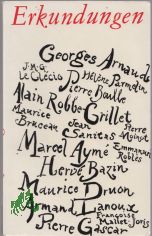 Erkundungen
Georges Arnaud
J.M.G. Le Clézio Hélène Parmelin
Pierre Boulle
Alain Robbe-Grillet
Maurice Bruceau Jean Sanitas Pierre Moinot
Marcel Aymé Emmanuel Roblès
Hervé Bazin
Maurice Druon
Armand Lanoux
Pierre Gascar Françoise Mallet-Joris